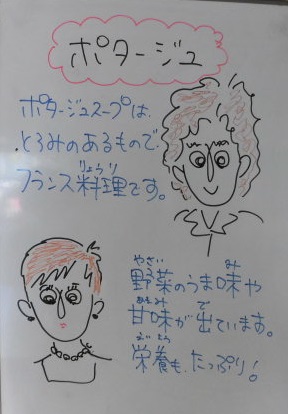 ポタージュ
ポタージュスープは、
とろみのあるもので、
りょうり
フランス料理です。
やさい み
野菜のうま味や
あまみ で
甘味が出ています。
えいよう
栄養も、たっぷり!